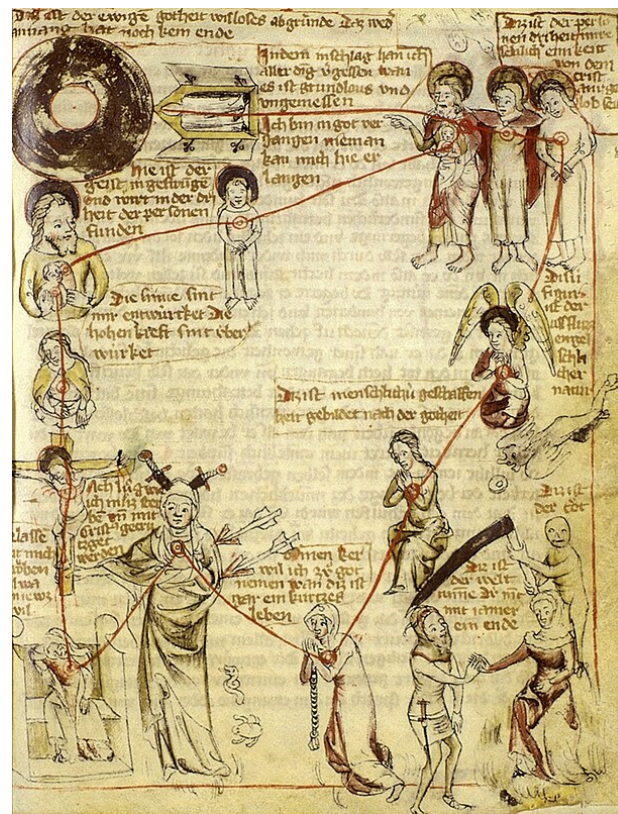 Diz ist der ewigen gotheit wisloses abgründe daz weder
anvang hat noch kein ende
Diz ist der perso
nen driheit in we
selicher einikeit
von dem
crist
gelob
Indem inschlag han ich
aller ding vergessen wan
es ist grundlos vnd
vngemessen
Ich bin in got ver
gangen nieman
kan mich hie er
langen
hie ist der
geist in geswunge
vnd wirt in der dri
heit der personen
funden
Die sinne sint
mir entwürket die
hohen kreft sint über
würket
Disú
figur
ist der
usfluz
engel
schli
cher
natur
Diz ist menschlichú geschaffen
heit gebildet nach der gotheit
Ach lůg wie
ich můz ster
be vn mit
crist gecrú
tzget
werden
lasse
Diz ist
der tot
wil ich zů got
nemen wan diz ist
nar ein kurtzes
leben
Diz ist
der welt
mine dú nimt
mit iamer
ein ende